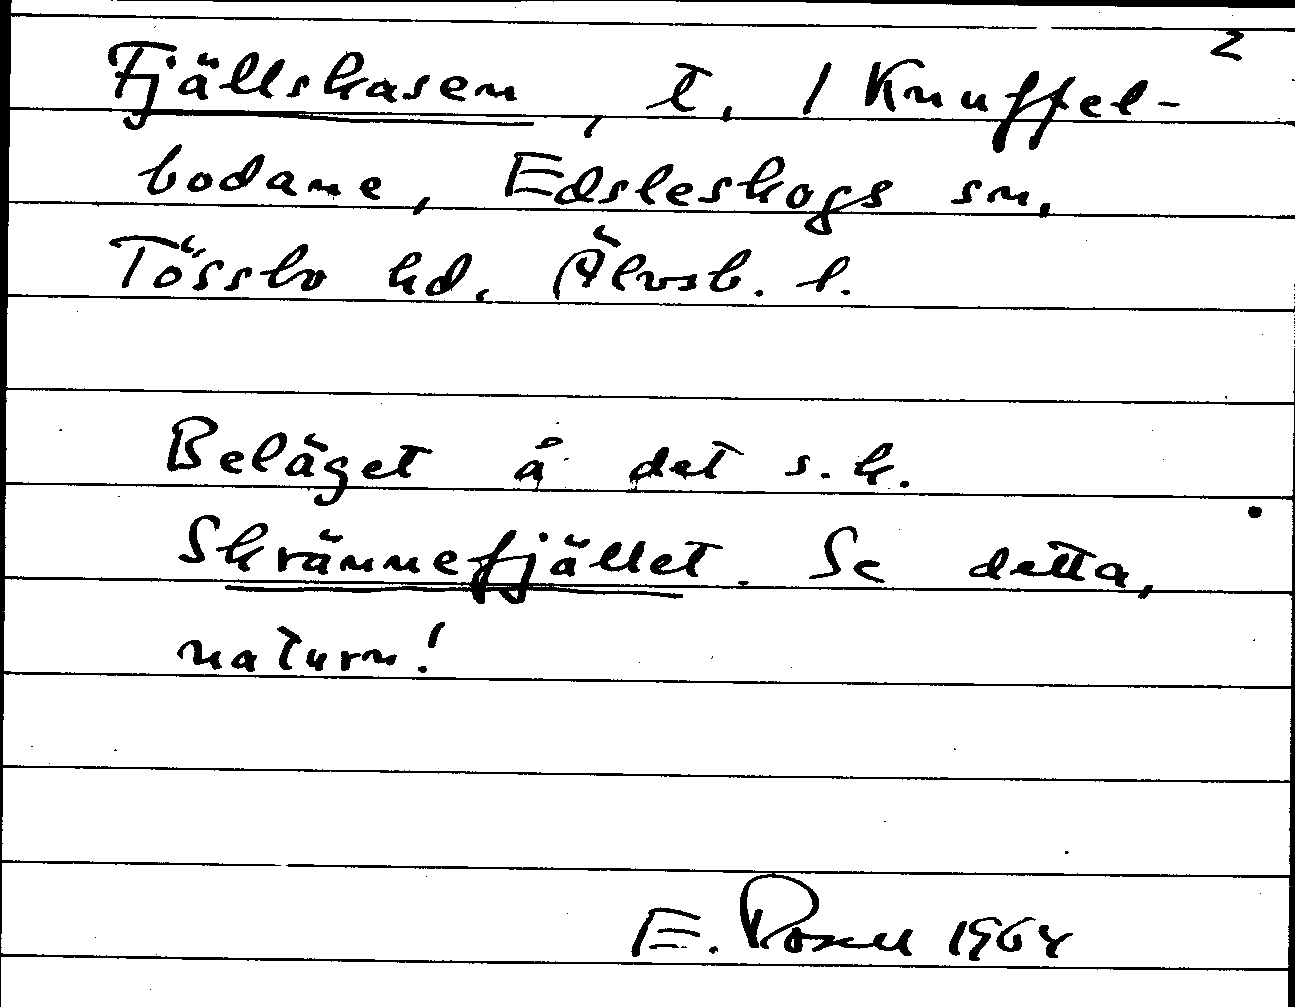 2
Fjällskasen, t. / Knuffel-
bodane, Edsleskogs sn.
Tössbo hd. Älvsb. l.
Beläget å det s.k.
Skrännefjället. Se detta,
naturn!
E. Rosell 1964